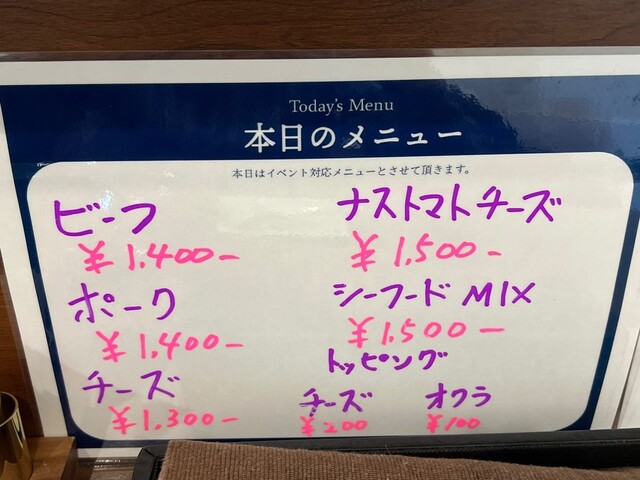 Today's Menu
本日のメニュー
本日はイベント対応メニューとさせて頂きます。
ビーフ
¥1,400-
ポーク
¥1,400-
チーズ
¥1,300-
ナストマトチーズ
¥1,500-
シーフードMIX
¥1,500-
トッピング
チーズ
¥200
オクラ
¥100